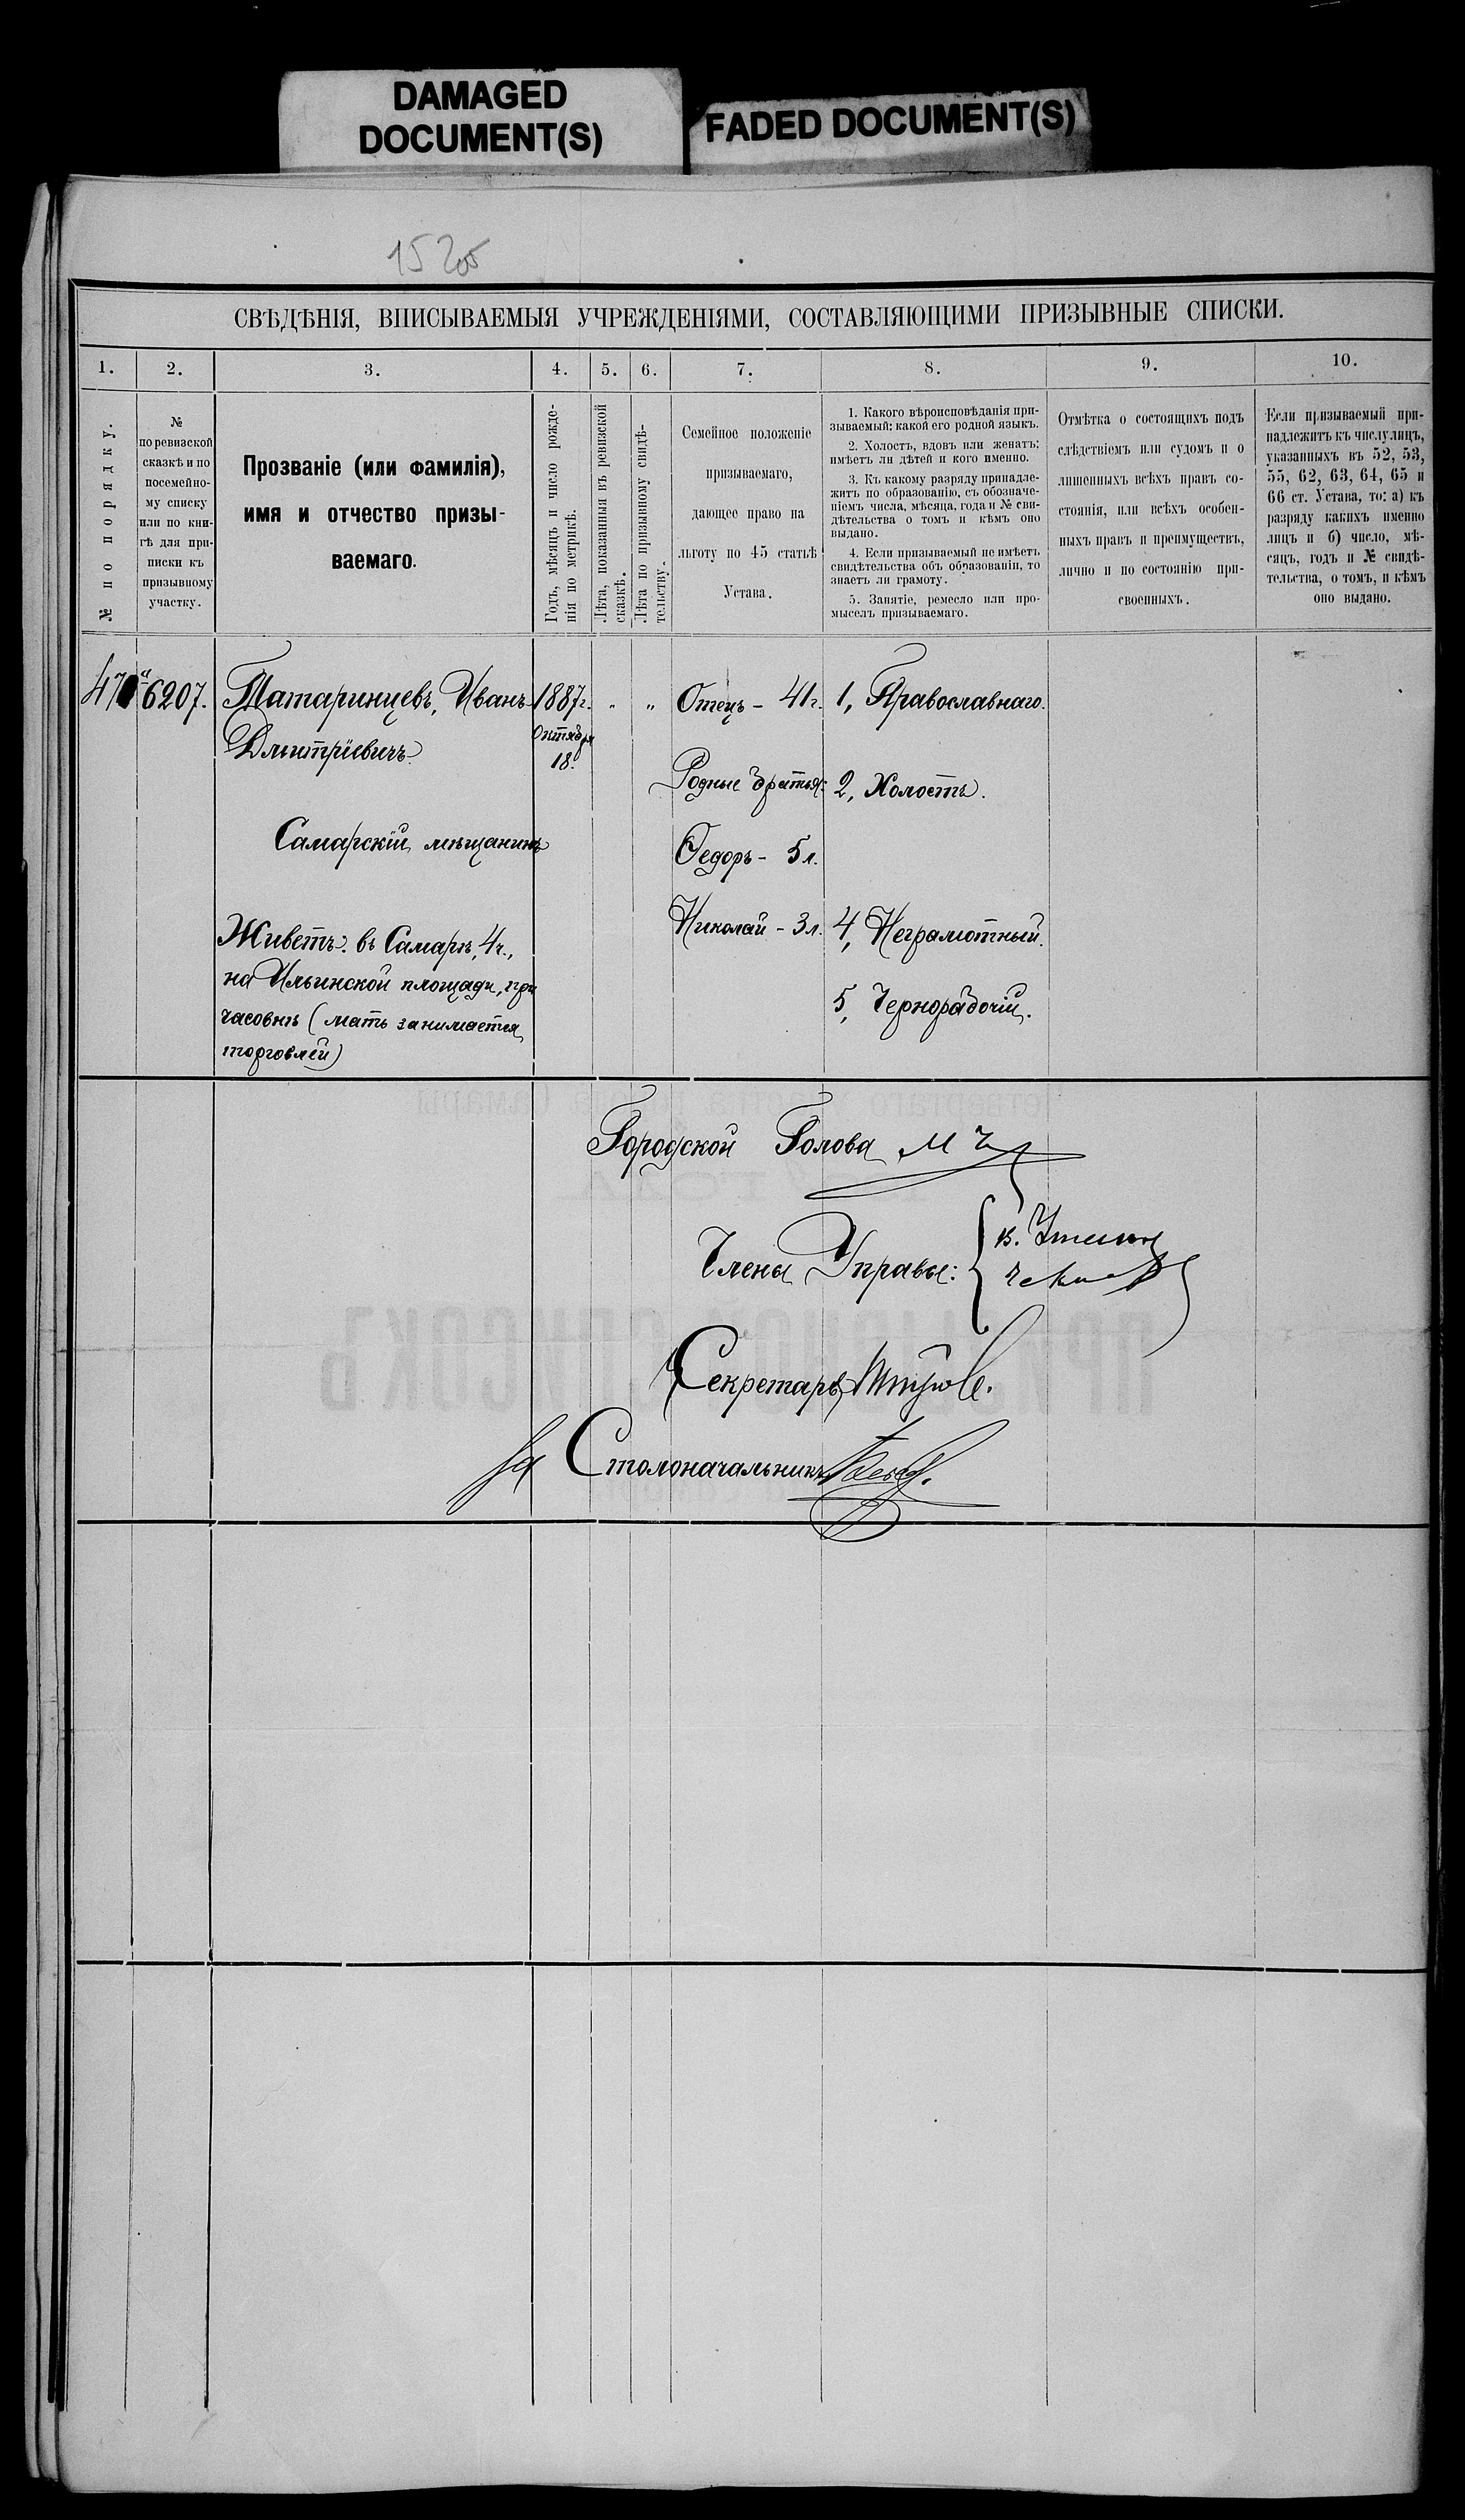 DAMAGED
DOCUMENT(S)
FADED DOCUMENT(S)
СВѢДѢНІЯ, ВПИСЫВАЕМЫЯ УЧРЕЖДЕНІЯМИ, СОСТАВЛЯЮЩИМИ ПРИЗЫВНЫЕ СПИСКИ.
1. 2. 3. 4. 5. 6. 7. 8. 9. 10.
№ по порядку.
№
по ревизской
сказкѣ и по
посемейно-
му списку
или по кни-
гѣ для при-
писки къ
призывному
участку.
Прозваніе (или фамилія),
имя и отчество призы-
ваемаго.
Годъ, мѣсяцъ и число рожде-
нія по метрикѣ.
Лѣта, показанныя въ ревизской
сказкѣ.
Лѣта по призывному свидѣ-
тельству.
Семейное положеніе
призываемаго,
дающее право на
льготу по 45 статьѣ
Устава.
1. Какого вѣроисповѣданія при-
зываемый; какой его родной языкъ.
2. Холостъ, вдовъ или женатъ;
имѣетъ ли дѣтей и кого именно.
3. Къ какому разряду принадле-
житъ по образованію, съ обозначе-
ніемъ числа, мѣсяца, года и № сви-
дѣтельства о томъ и кѣмъ оно
выдано.
4. Если призываемый не имѣетъ
свидѣтельства объ образованіи, то
знаетъ ли грамоту.
5. Занятіе, ремесло или про-
мыселъ призываемаго.
Отмѣтка о состоящихъ подъ
слѣдствіемъ или судомъ и о
лишенныхъ всѣхъ правъ со-
стоянія, или всѣхъ особен-
ныхъ правъ и преимуществъ,
лично и по состоянію при-
своенныхъ.
Если призываемый при-
надлежитъ къ числу лицъ,
указанныхъ въ 52, 53,
55, 62, 63, 64, 65 и
66 ст. Устава, то: а) къ
разряду какихъ именно
лицъ и б) число, мѣ-
сяцъ, годъ и № свидѣ-
тельства, о томъ, и кѣмъ
оно выдано.
6207. Татаринцевъ, Иванъ 1887г. „ „ Отецъ - 41г. 1, Православнаго.
Дмитріевичъ октября
18.
Родные братья: 2, Холостъ.
Самарскій мѣщанинъ
Ѳедоръ - 5 л.
Николай - 3 л. 4, Неграмотный.
Живетъ: въ Самарѣ, 4ч.,
на Ильинской площади, при
5, Чернорабочій.
часовнѣ (мать занимается
торговлей)
Городской Голова
Члены Управы:
Секретарь
За Столоначальника